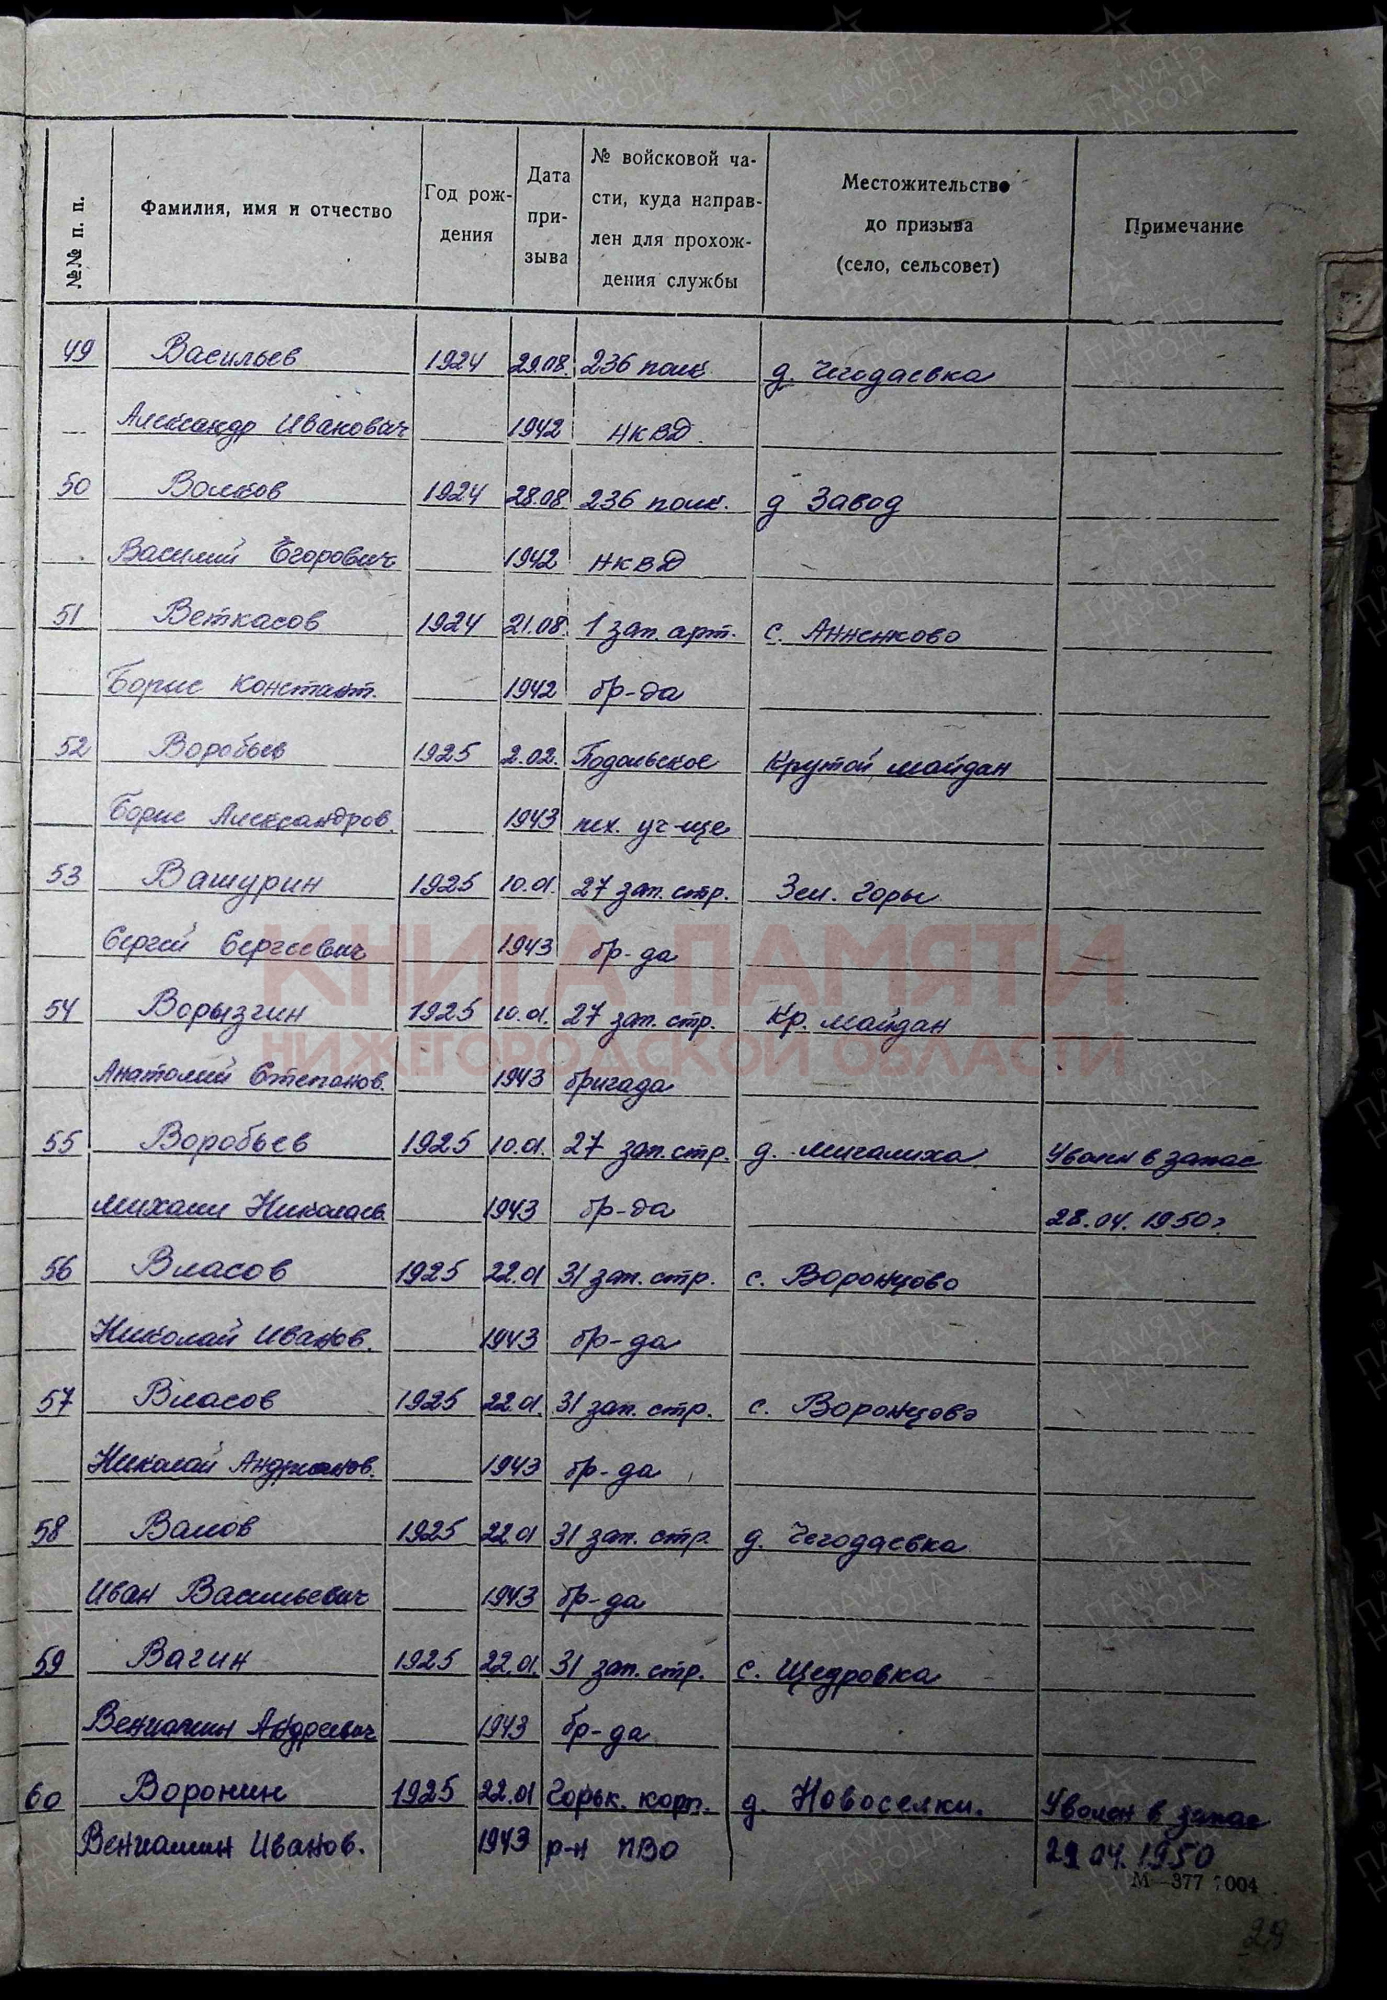 №№ п. п.
Фамилия, имя и отчество
Год рож-
дения
Дата
при-
зыва
№ войсковой ча-
сти, куда направ-
лен для прохож-
дения службы
Местожительство
до призыва
(село, сельсовет)
Примечание
49 Васильев 1924 29.08. 236 полк д. Чегодаевка
Александр Иванович 1942 НКВД
50 Волков 1924 28.08 236 полк. д Завод
Василий Егорович 1942 НКВД
51 Веткасов 1924 21.08. 1 зап. арт. с. Анненково
Борис Констант. 1942 бр-да
52 Воробьев 1925 2.02. Подольское Крутой майдан
Борис Александров. 1943 пех. уч-ще
53 Вашурин 1925 10.01. 27 зап. стр. Зел. Горы
Сергей Сергеевич 1943 бр-да
54 Ворызгин 1925 10.01. 27 зап. стр. Кр. майдан
Анатолий Степанов. 1943 бригада
55 Воробьев 1925 10.01. 27 зап. стр. д. Мигалиха Уволен в запас
Михаил Николаев. 1943 бр-да 28.04. 1950г
56 Власов 1925 22.01 31 зап. стр. с. Воронцово
Николай Иванов. 1943 бр-да
57 Власов 1925 22.01. 31 зап. стр. с. Воронцово
Николай Андрианов. 1943 бр-да
58 Валов 1925 22.01 31 зап. стр. д. Чегодаевка
Иван Васильевич 1943 бр-да
59 Вагин 1925 22.01. 31 зап. стр. с. Щедровка
Вениамин Андреевич 1943 бр-да
60 Воронин 1925 22.01 Горьк. корп. д. Новоселки. Уволен в запас
Вениамин Иванов. 1943 р-н ПВО 29 04. 1950
М—377 7004
29
КНИГА ПАМЯТИ
НИЖЕГОРОДСКОЙ ОБЛАСТИ
ПАМЯТЬ
НАРОДА